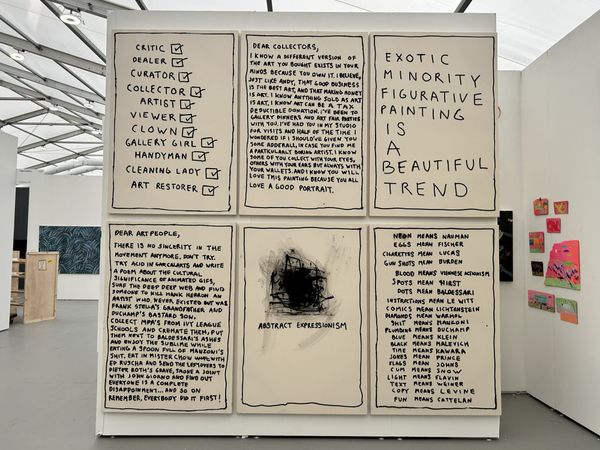 CRITIC ☑
DEALER ☑
CURATOR ☑
COLLECTOR ☑
ARTIST ☑
VIEWER ☑
CLOWN ☑
GALLERY GIRL ☑
HANDYMAN ☑
CLEANING LADY ☑
ART RESTORER ☑
DEAR COLLECTORS,
I KNOW A DIFFERENT VERSION OF
THE ART YOU BOUGHT EXISTS IN YOUR
MINDS BECAUSE YOU OWN IT. I BELIEVE,
JUST LIKE ANDY, THAT GOOD BUSINESS
IS THE BEST ART, AND THAT MAKING MONEY
IS ART. I KNOW ANYTHING SOLD AS ART
IS ART. I KNOW ART CAN BE A TAX
DEDUCTIBLE DONATION. I'VE BEEN TO
GALLERY DINNERS AND ART FAIR PARTIES
WITH YOU. I'VE HAD YOU IN MY STUDIO
FOR VISITS AND HALF OF THE TIME I
WONDERED IF I SHOULD'VE GIVEN YOU
SOME ADDERALL, IN CASE YOU FIND ME
A PARTICULARLY BORING ARTIST. I KNOW
SOME OF YOU COLLECT WITH YOUR EYES,
OTHERS WITH YOUR EARS BUT ALWAYS WITH
YOUR WALLETS. AND I KNOW YOU WILL
LOVE THIS PAINTING BECAUSE YOU ALL
LOVE A GOOD PORTRAIT.
EXOTIC
MINORITY
FIGURATIVE
PAINTING
IS
A
BEAUTIFUL
TREND
DEAR ART PEOPLE,
THERE IS NO SINCERITY IN THE
MOVEMENT ANYMORE. DON'T TRY.
TRY ACID IN GARCALATS AND WRITE
A POEM ABOUT THE CULTURAL
SIGNIFICANCE OF ANIMATED GIFS,
SURF THE DEEP DEEP WEB AND FIND
SOMEONE TO KILL HANK HERRON AN
ARTIST WHO NEVER EXISTED BUT WAS
FRANK STELLA'S GRANDFATHER AND
DUCHAMP'S BASTARD SON.
COLLECT MFA'S FROM IVY LEAGUE
SCHOOLS AND CREMATE THEM. PUT
THEM NEXT TO BALDESSARI'S ASHES
AND ENJOY THE SUBLIME WHILE
EATING A SPOON FULL OF MANZONI'S
SHIT. EAT IN MISTER CHOW WORK WITH
ED RUSCHA AND SEND THE LEFTOVERS TO
DIETER ROTH'S GRAVE. SMOKE A JOINT
WITH JOHN GIORNO AND FIND OUT
EVERYONE IS A COMPLETE
DISAPPOINTMENT... AND SO ON
REMEMBER, EVERYBODY DID IT FIRST!
ABSTRACT EXPRESSIONISM
NEON MEANS NAUMAN
EGGS MEAN FISCHER
CIGARETTES MEAN LUCAS
GUN SHOTS MEAN BURDEN
BLOOD MEANS VIENNESE ACTIONISM
SPOTS MEAN HIRST
DOTS MEAN BALDESSARI
INSTRUCTIONS MEAN LE WITT
COMICS MEAN LICHTENSTEIN
DIAMONDS MEAN WARHOL
SHIT MEANS MANZONI
PLUMBING MEANS DUCHAMP
BLUE MEANS KLEIN
BLACK MEANS MALEVICH
TIME MEANS KAWARA
JOKES MEAN PRINCE
FLAGS MEAN JOHNS
CUM MEANS SNOW
LIGHT MEANS FLAVIN
TEXT MEANS WEINER
COPY MEANS LEVINE
FUN MEANS CATTELAN